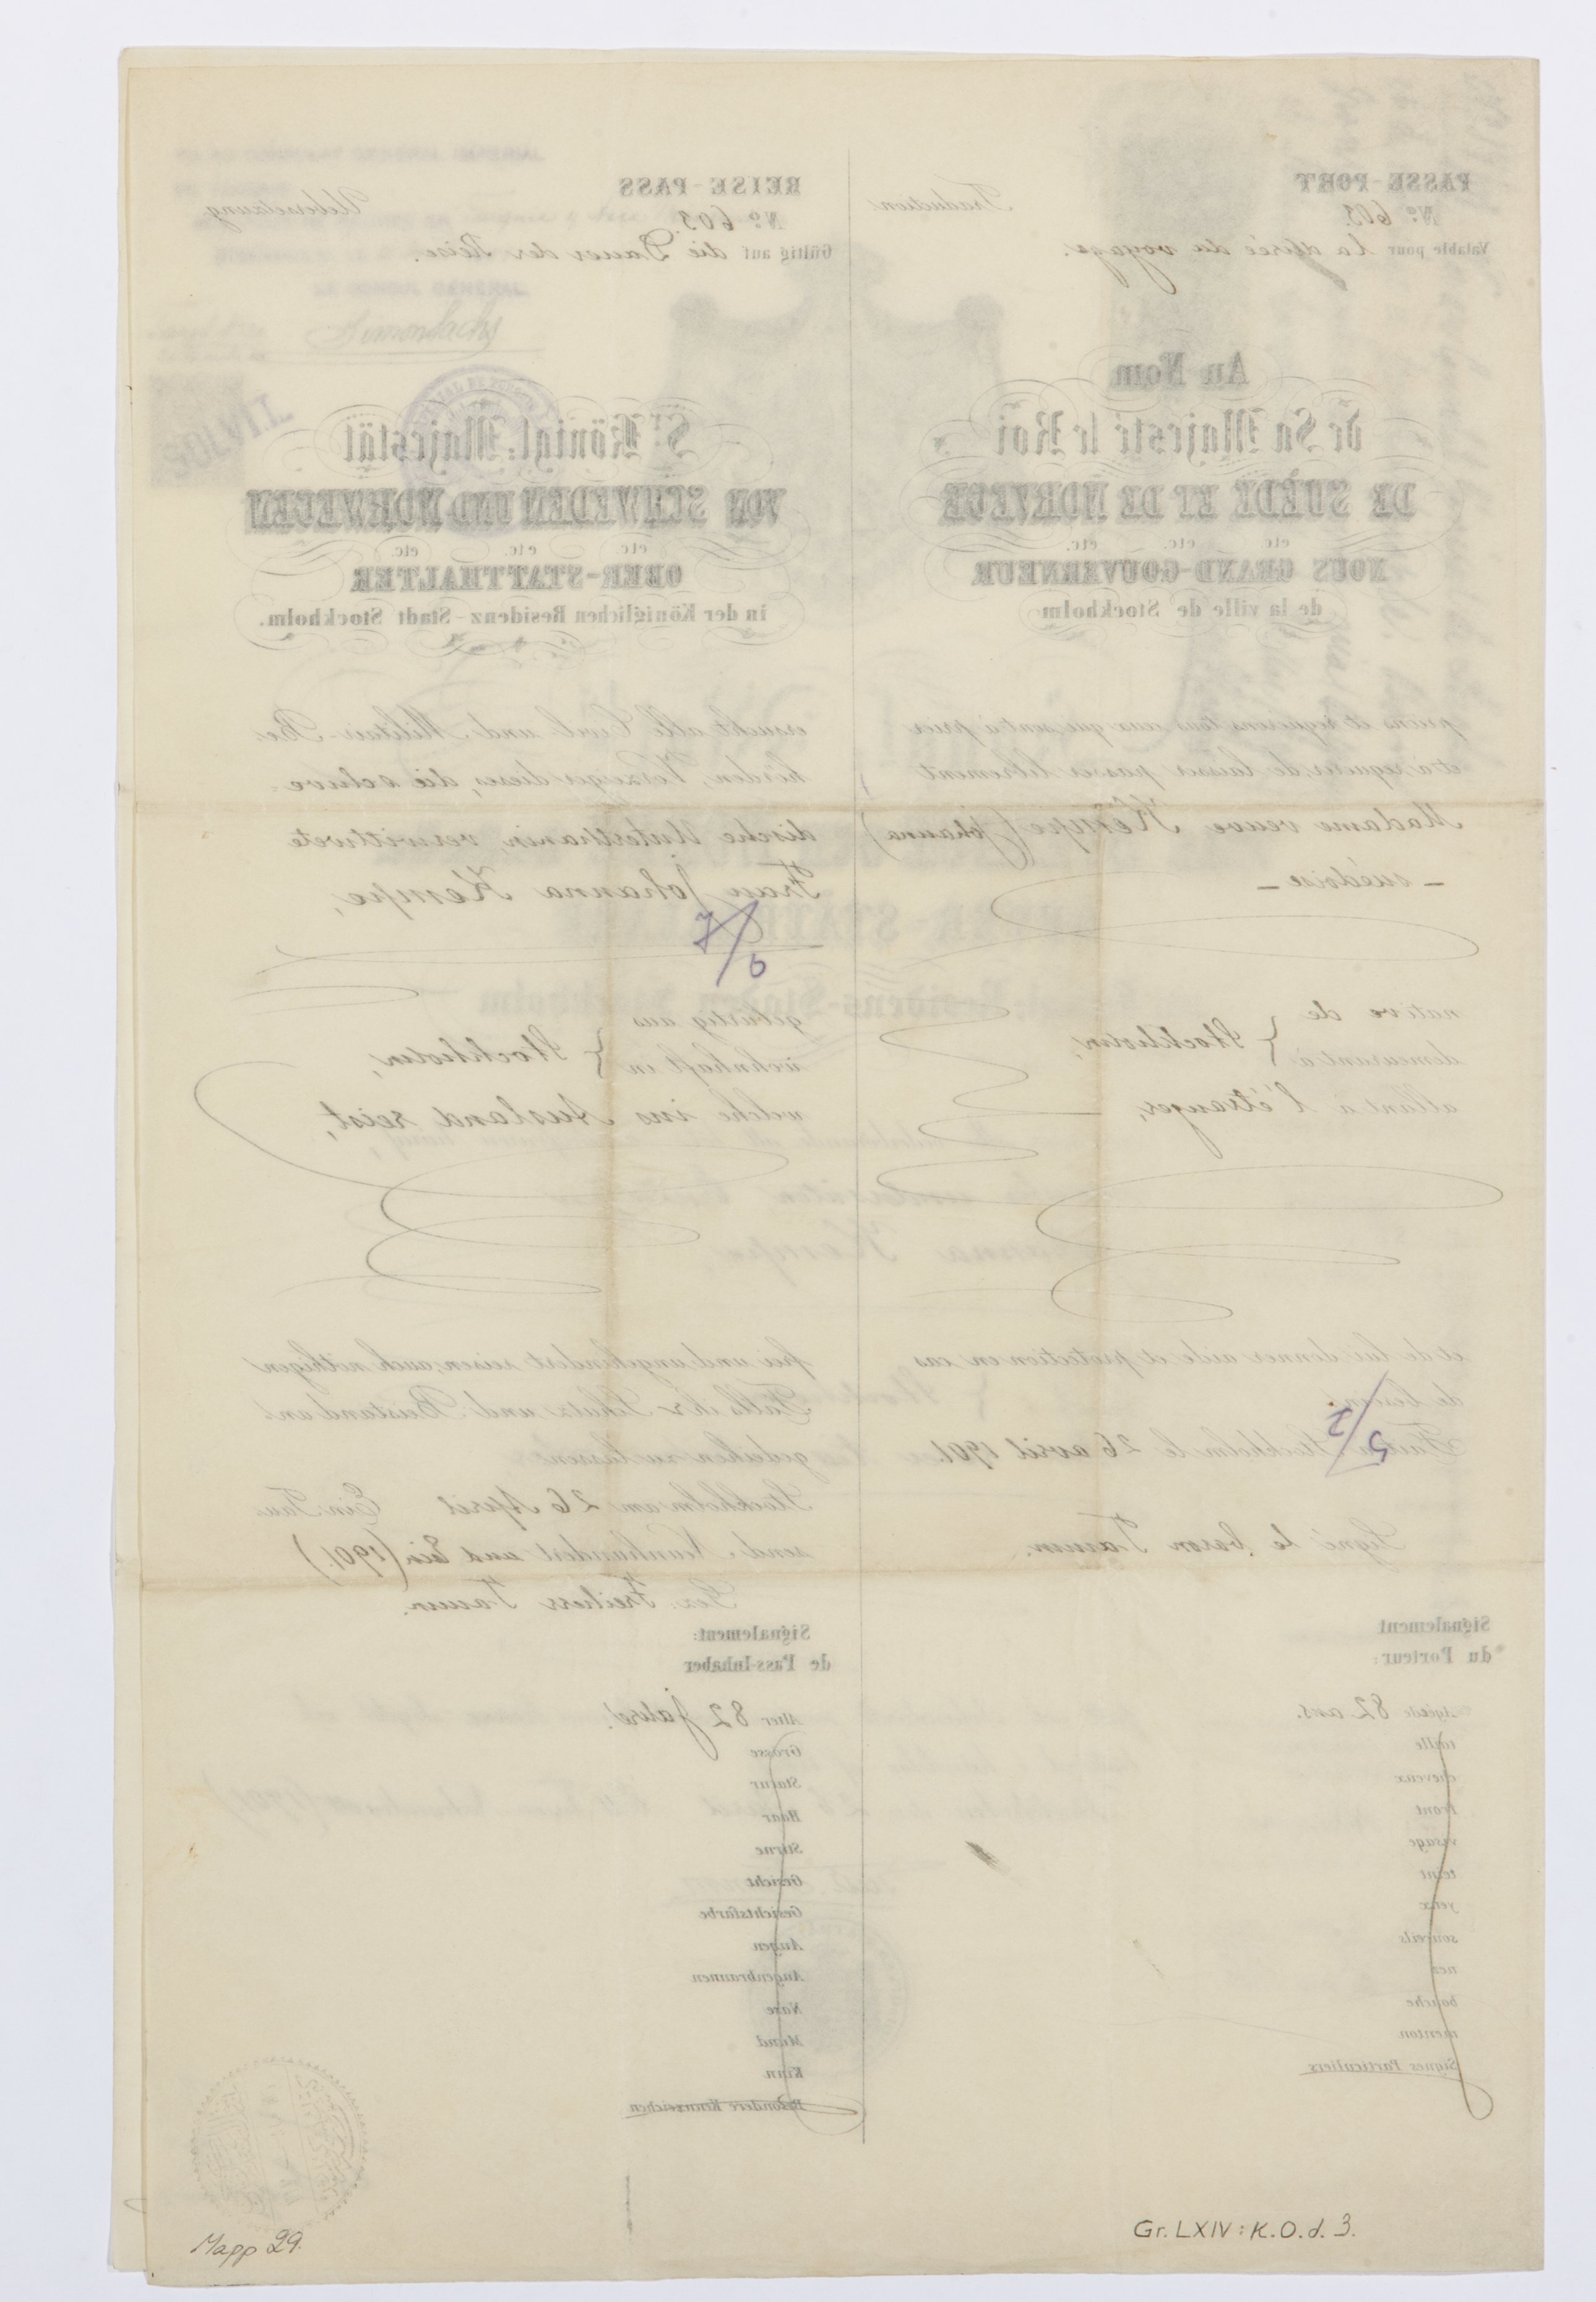 PASSE-PORT
Traduction
No 603.
Valable pour la durée du voyage.
Au Nom
de Sa Majesté le Roi
DE SUÈDE ET DE NORVÈGE
etc. etc. etc.
NOUS GRAND-GOUVERNEUR
de la ville de Stockholm
prions et requérons tous ceux qui sont à prier
et à requérir, de laisser passer librement
Madame veuve Kempe (Johanna)
– suédoise –
native de
demeurant à } Stockholm,
allant à l'étranger,
et de lui donner aide et protection en cas
de besoin.
Stockholm le 26 avril 1901.
Signé le baron Tamm.
Signalement
du Porteur:
Agée de 82 ans.
taille
cheveux
front
visage
teint
yeux
sourcils
nez
bouche
menton
Signes Particuliers
REISE-PASS
Uebersetzung
No 603.
Gültig auf die Dauer der Reise.
Sr Königl. Majestät
VON SCHWEDEN UND NORWEGEN
etc. etc. etc.
OBER-STATTHALTER
in der Königlichen Residenz-Stadt Stockholm.
ersucht alle Civil und Militair-Be-
hörden, Vorzeiger dieses, die schwe-
dische Unterthanin, verwittwete
Frau Johanna Kempe,
gebürtig aus
wohnhaft in } Stockholm,
welche ins Ausland reist,
frei und ungehindert reisen, auch nöthigen
Falls ihr Schutz und Beistand an-
gedeihen zu lassen.
Stockholm am 26 April Ein Tau
send Neunhundert und Ein (1901)
Gez. Freiherr Tamm.
Signalement:
de Pass-Inhaber
Alter 82 Jahre.
Grösse
Statur
Haar
Stirne
Gesicht
Gesichtsfarbe
Augen
Augenbraunen
Nase
Mund
Kinn
Besondere Kennzeichen
Mapp 29.
Gr. LXIV: K.O.d. 3.